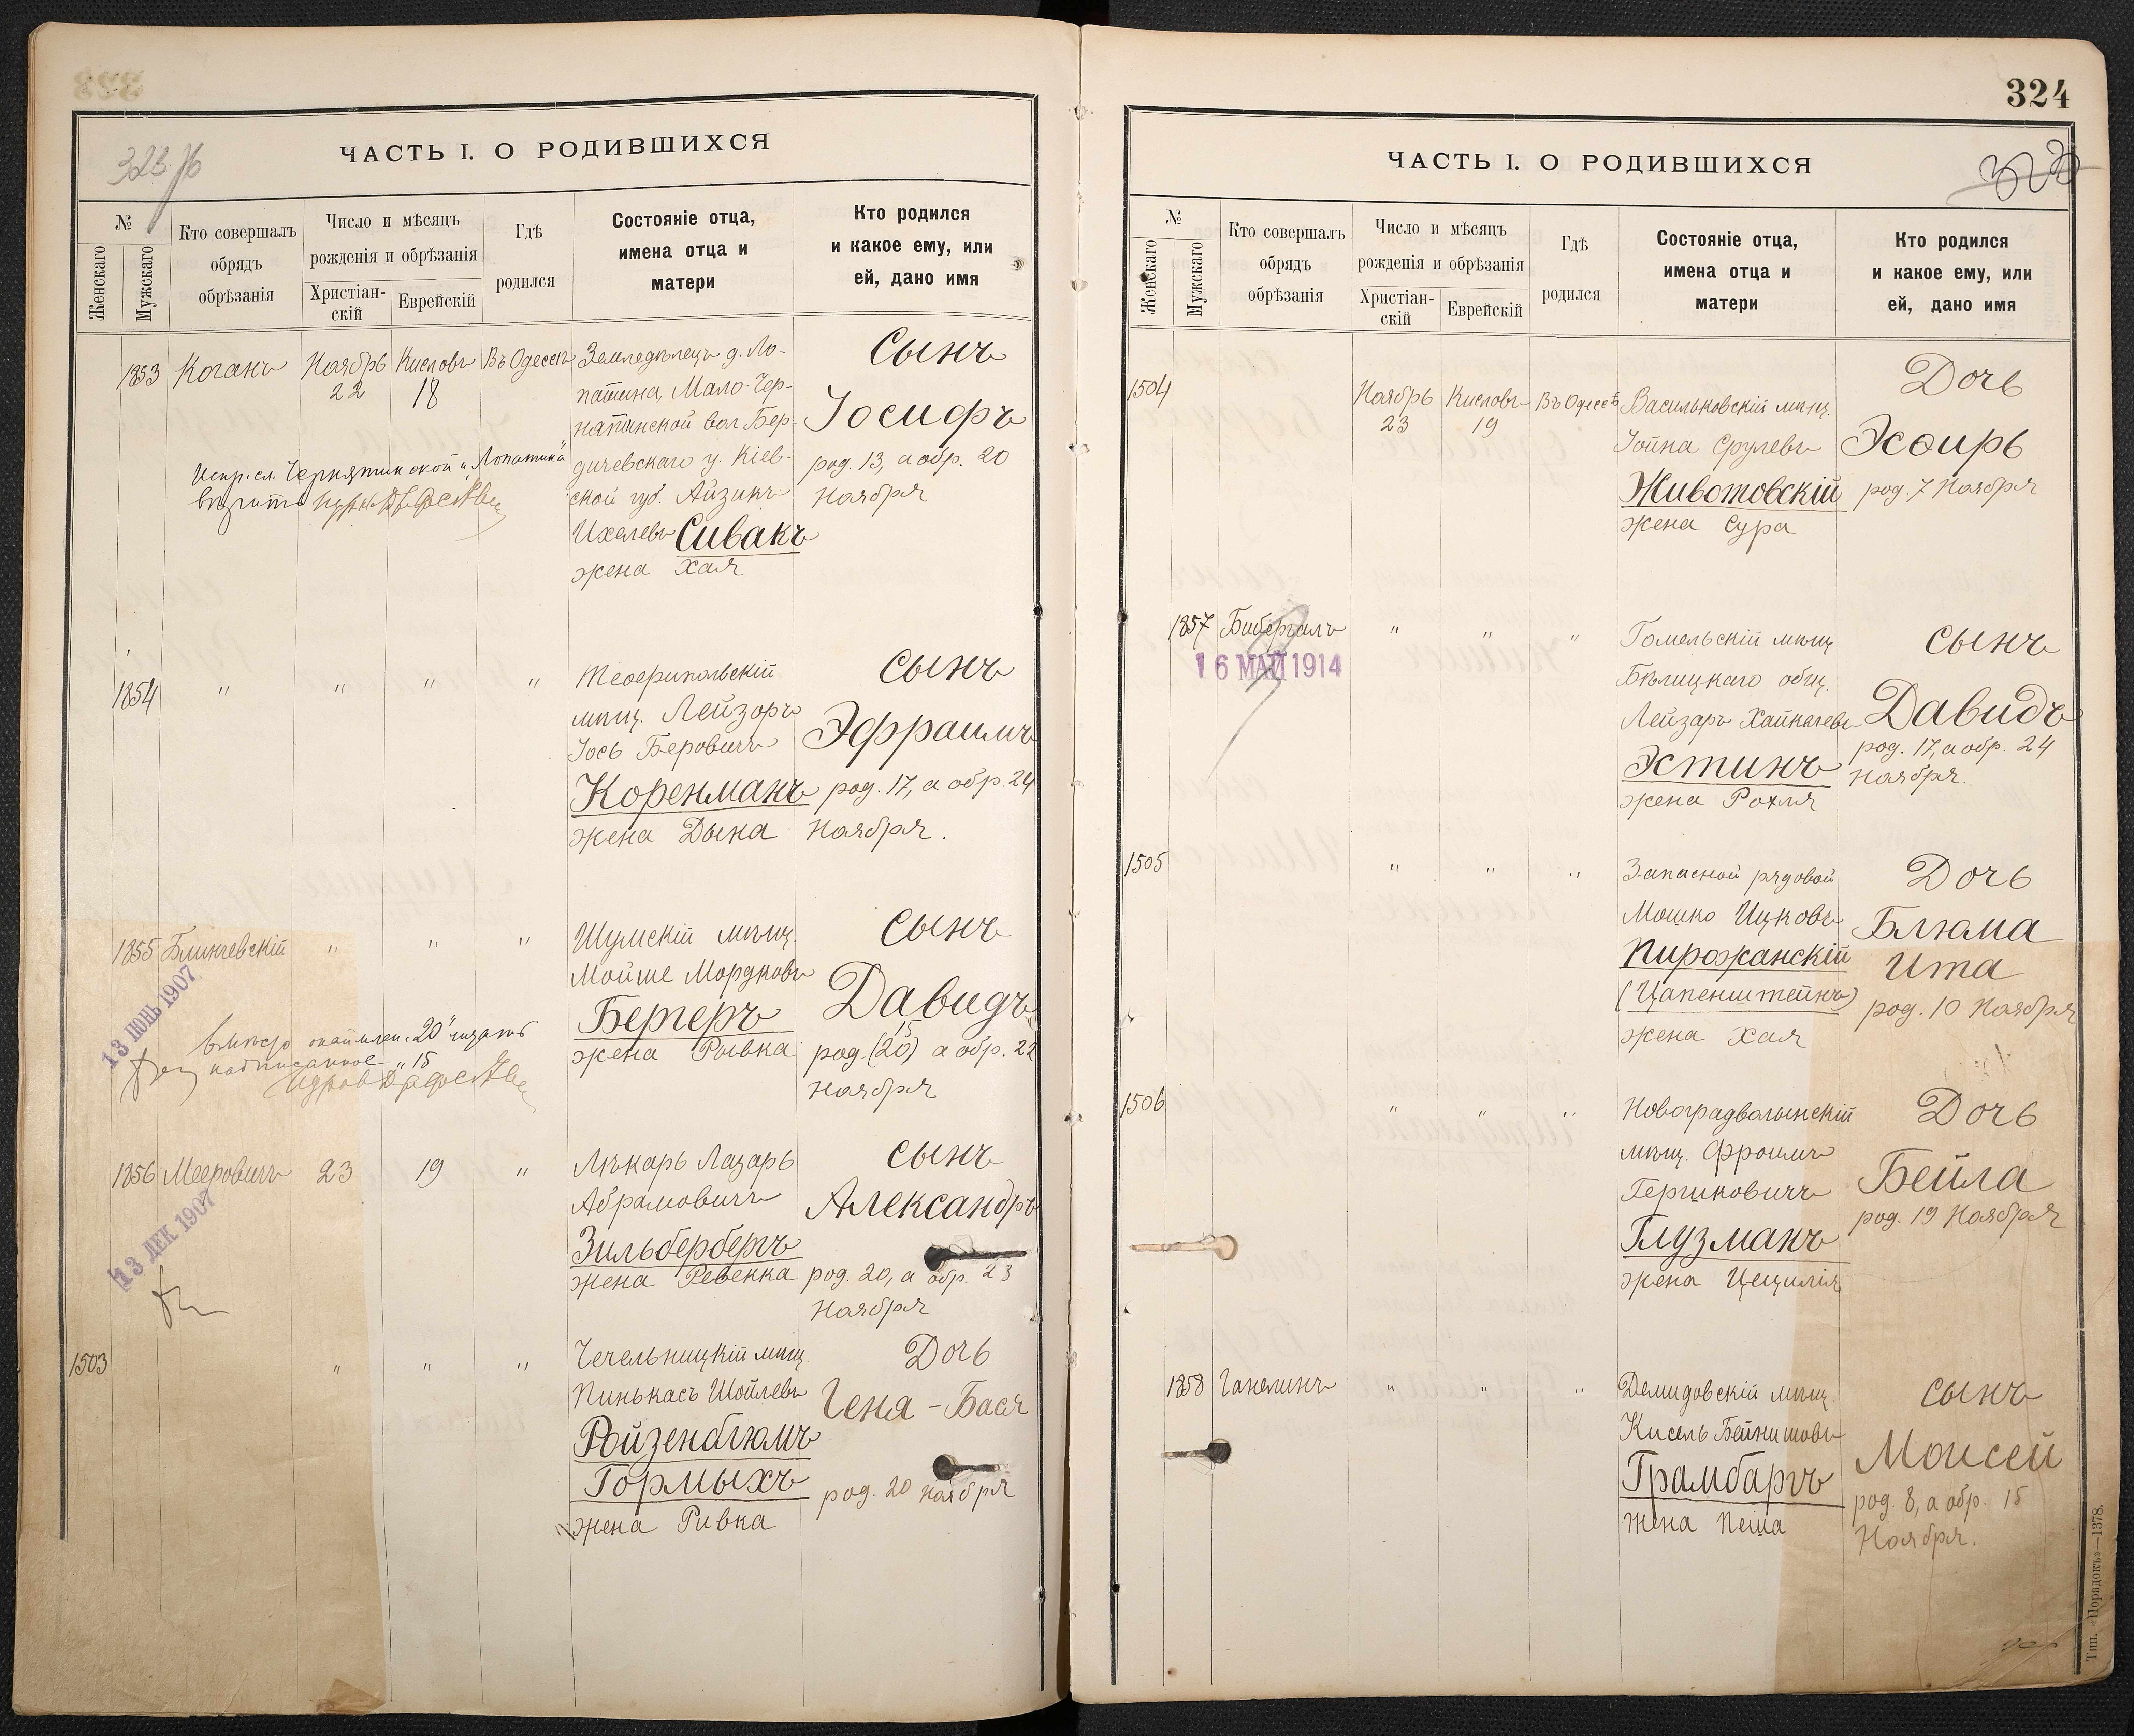 ЧАСТЬ I. О РОДИВШИХСЯ
№
Женскаго
Мужскаго
Кто совершалъ
обрядъ
обрѣзанія
Число и мѣсяцъ
рожденія и обрѣзанія
Христіан-
скій
Еврейскій
Гдѣ
родился
Состояніе отца,
имена отца и
матери
Кто родился
и какое ему, или
ей, дано имя
1853
Коганъ
Ноябрь
22
Кислевъ
18
Въ Одессѣ
Земледѣлецъ д. Ло-
патина, Мало-Чер-
нятинской вол. Бер-
дичевскаго у. Кіев-
ской губ. Айзикъ
Ихелевъ Сивакъ
жена Хая
Сынъ
Іосифъ
род. 13, а обр. 20
Ноября
Испр. сл. Чернятинской и „Лопатина"
вѣрить
1854
" " " "
Теофипольскій
мѣщ. Лейзоръ
Іось Беровичъ
Коренманъ
жена Дына
Сынъ
Эфраимъ
род. 17, а обр. 24
Ноября.
1855
Блинчевскій
" " "
Шумскій мѣщ.
Мойше Мордковъ
Бергеръ
жена Рывка
Сынъ
Давидъ
15
род. (20) а обр. 22
Ноября
13 ІЮНЬ 1907
вмѣсто „20" читать
надписанное „15
1856
Мееровичъ
23
19
"
Лѣкарь Лазарь
Абрамовичъ
Зильбербергъ
жена Ревекка
Сынъ
Александръ
род. 20, а обр. 23
Ноября
13 ДЕК 1907
1503
" " "
Чечельницкій мѣщ.
Пинькасъ Шойлевъ
Ройзенблюмъ
Гормыхъ
жена Ривка
Дочь
Геня-Бася
род. 20 Ноября
324
ЧАСТЬ I. О РОДИВШИХСЯ
№
Женскаго
Мужскаго
Кто совершалъ
обрядъ
обрѣзанія
Число и мѣсяцъ
рожденія и обрѣзанія
Христіан-
скій
Еврейскій
Гдѣ
родился
Состояніе отца,
имена отца и
матери
Кто родился
и какое ему, или
ей, дано имя
1504
Ноябрь
23
Кислевъ
19
Въ Одессѣ
Васильковскій мѣщ.
Іойна Срулевъ
Животовскій
жена Сура
Дочь
Эсѳирь
род. 7 Ноября
1857
Бибергалъ
" " "
16 МАЙ 1914
Гомельскій мѣщ.
Бѣлицкаго общ.
Лейзаръ Хаймелевъ
Эстинъ
жена Рохля
Сынъ
Давидъ
род. 17, а обр. 24
Ноября.
1505
" " "
Запасной рядовой
Мошко Ицковъ
Пирожанскій
(Цапенштейнъ)
жена Хая
Дочь
Блюма
Ита
род. 10 Ноября
1506
" " "
Новоградволынскій
мѣщ. Фроимъ
Гершковичъ
Глузманъ
жена Цецилія
Дочь
Бейла
род. 19 Ноября
1858
Ганелинъ
" " "
Демидовскій мѣщ.
Кисель Бейнишовъ
Грамбаргъ
жена Пеша
Сынъ
Моисей
род. 8, а обр. 15
Ноября.
Тип. «Порядокъ»—1378.